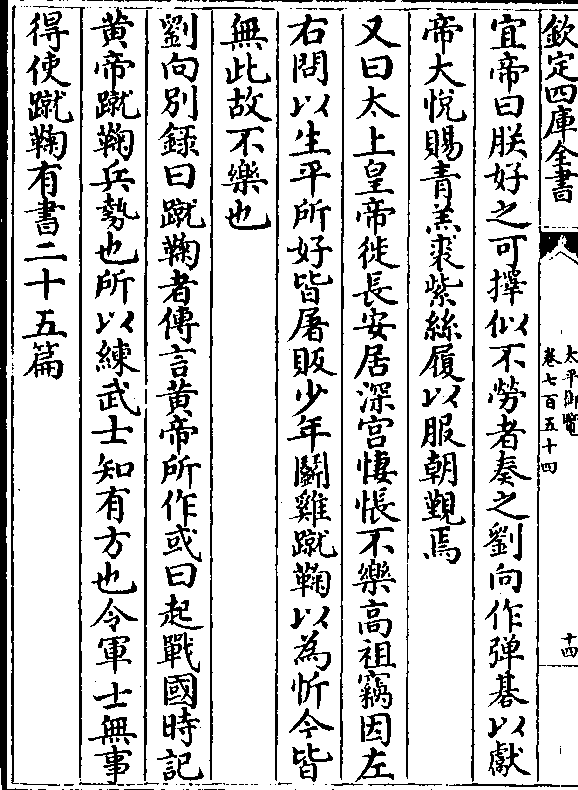 欽定四庫全書
太平御覽
卷七百五十四
十四
宜帝曰朕好之可擇似不勞者奏之劉向作彈碁以獻
帝大悅賜青羔裘紫絲履以服朝覲焉
又曰太上皇帝徙長安居深宫悽悵不樂高祖竊因左
右問以生平所好皆屠販少年鬭雞蹴鞠以為忻今皆
無此故不樂也
劉向別錄曰蹴鞠者傳言黄帝所作或曰起戰國時記
黄帝蹴鞠兵勢也所以練武士知有方也令軍士無事
得使蹴鞠有書二十五篇